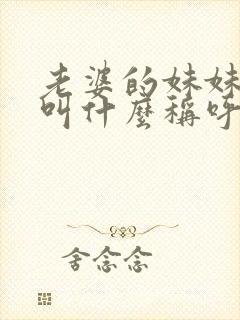 老婆的妹妹
叫什麼稱呼
舍念念